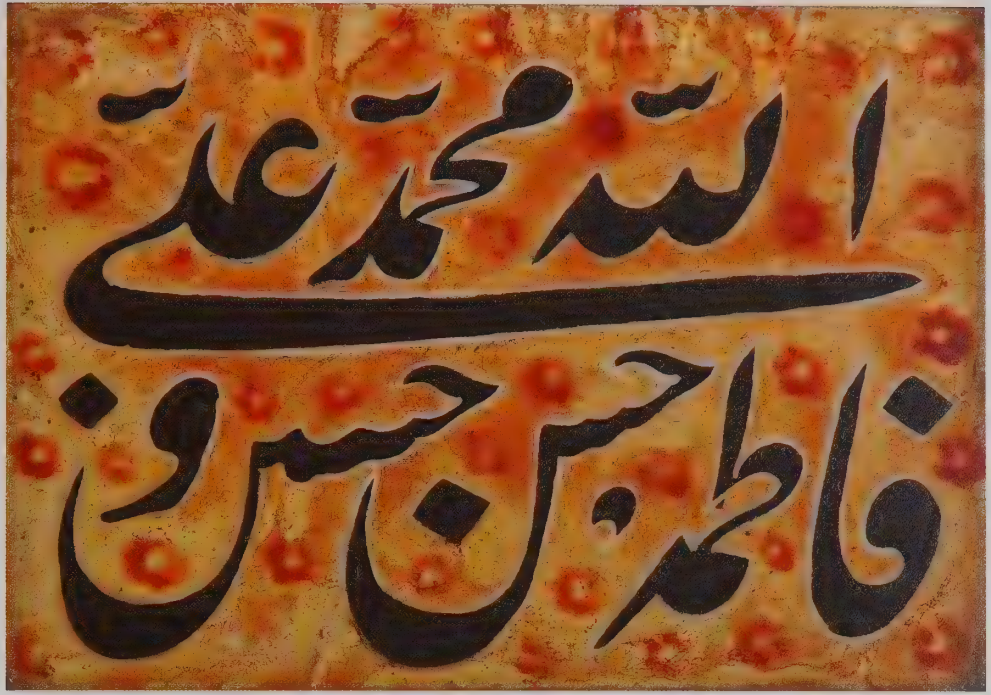 اللّه محمّد علیّ
فاطمه حسن و حسین